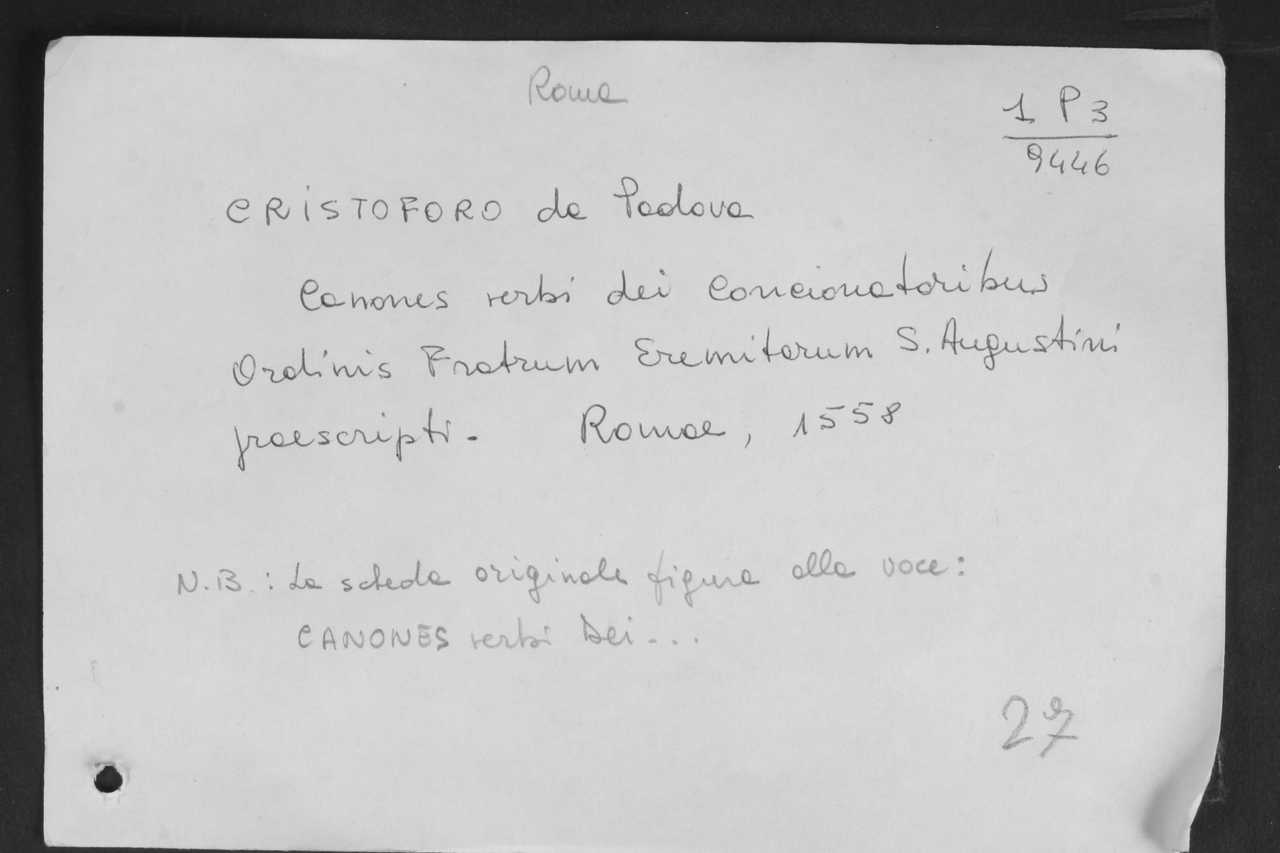 Roma
1 P 3
9446
CRISTOFORO da Padova
Canones verbi dei Concionatoribus
Ordinis Fratrum Eremitarum S. Augustini
praescripti. Romae, 1558
N.B.: La scheda originale figura alla voce:
CANONES verbi Dei...
27